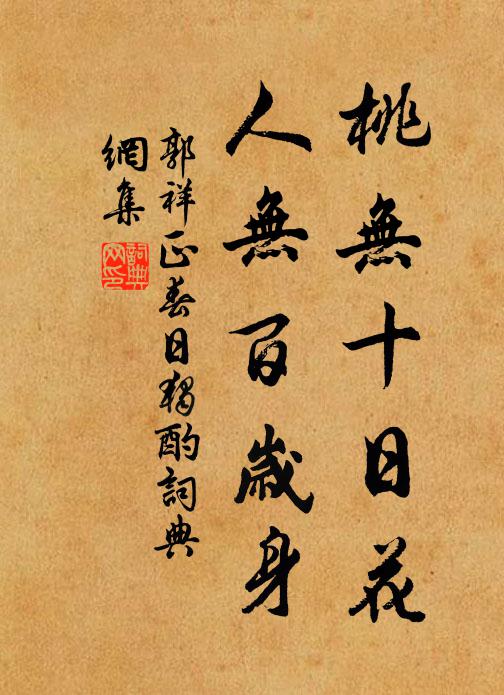 桃無十日花
人無百歲身
郭祥正春日獨酌詞典
網集
詞典
网印